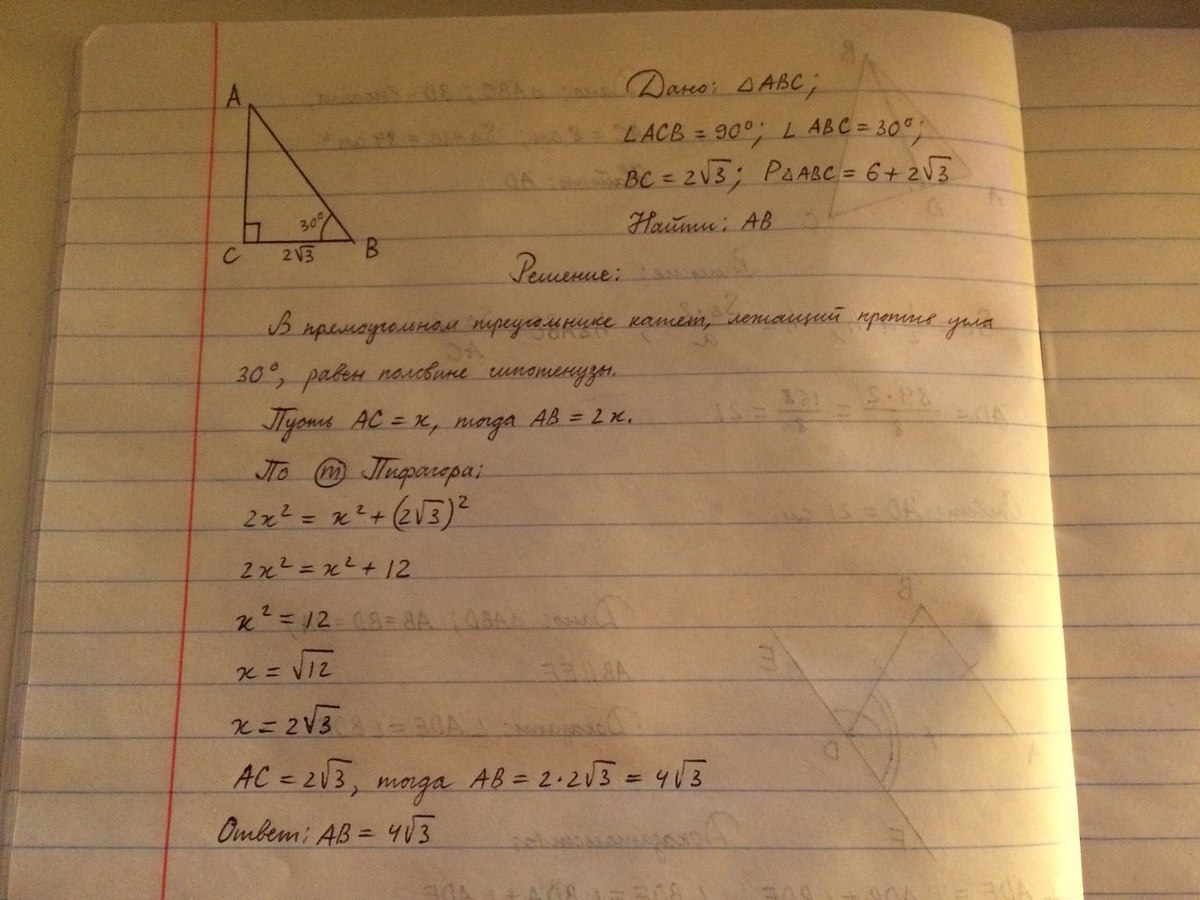 A
C
B
30°
2√3
Дано: △ABC;
∠ACB = 90°; ∠ABC = 30°;
BC = 2√3; P△ABC = 6 + 2√3
Найти: AB
Решение:
В прямоугольном треугольнике катет, лежащий против угла
30°, равен половине гипотенузы.
Пусть AC = x, тогда AB = 2x.
По (т) Пифагора:
2x² = x² + (2√3)²
2x² = x² + 12
x² = 12
x = √12
x = 2√3
AC = 2√3, тогда AB = 2·2√3 = 4√3
Ответ: AB = 4√3